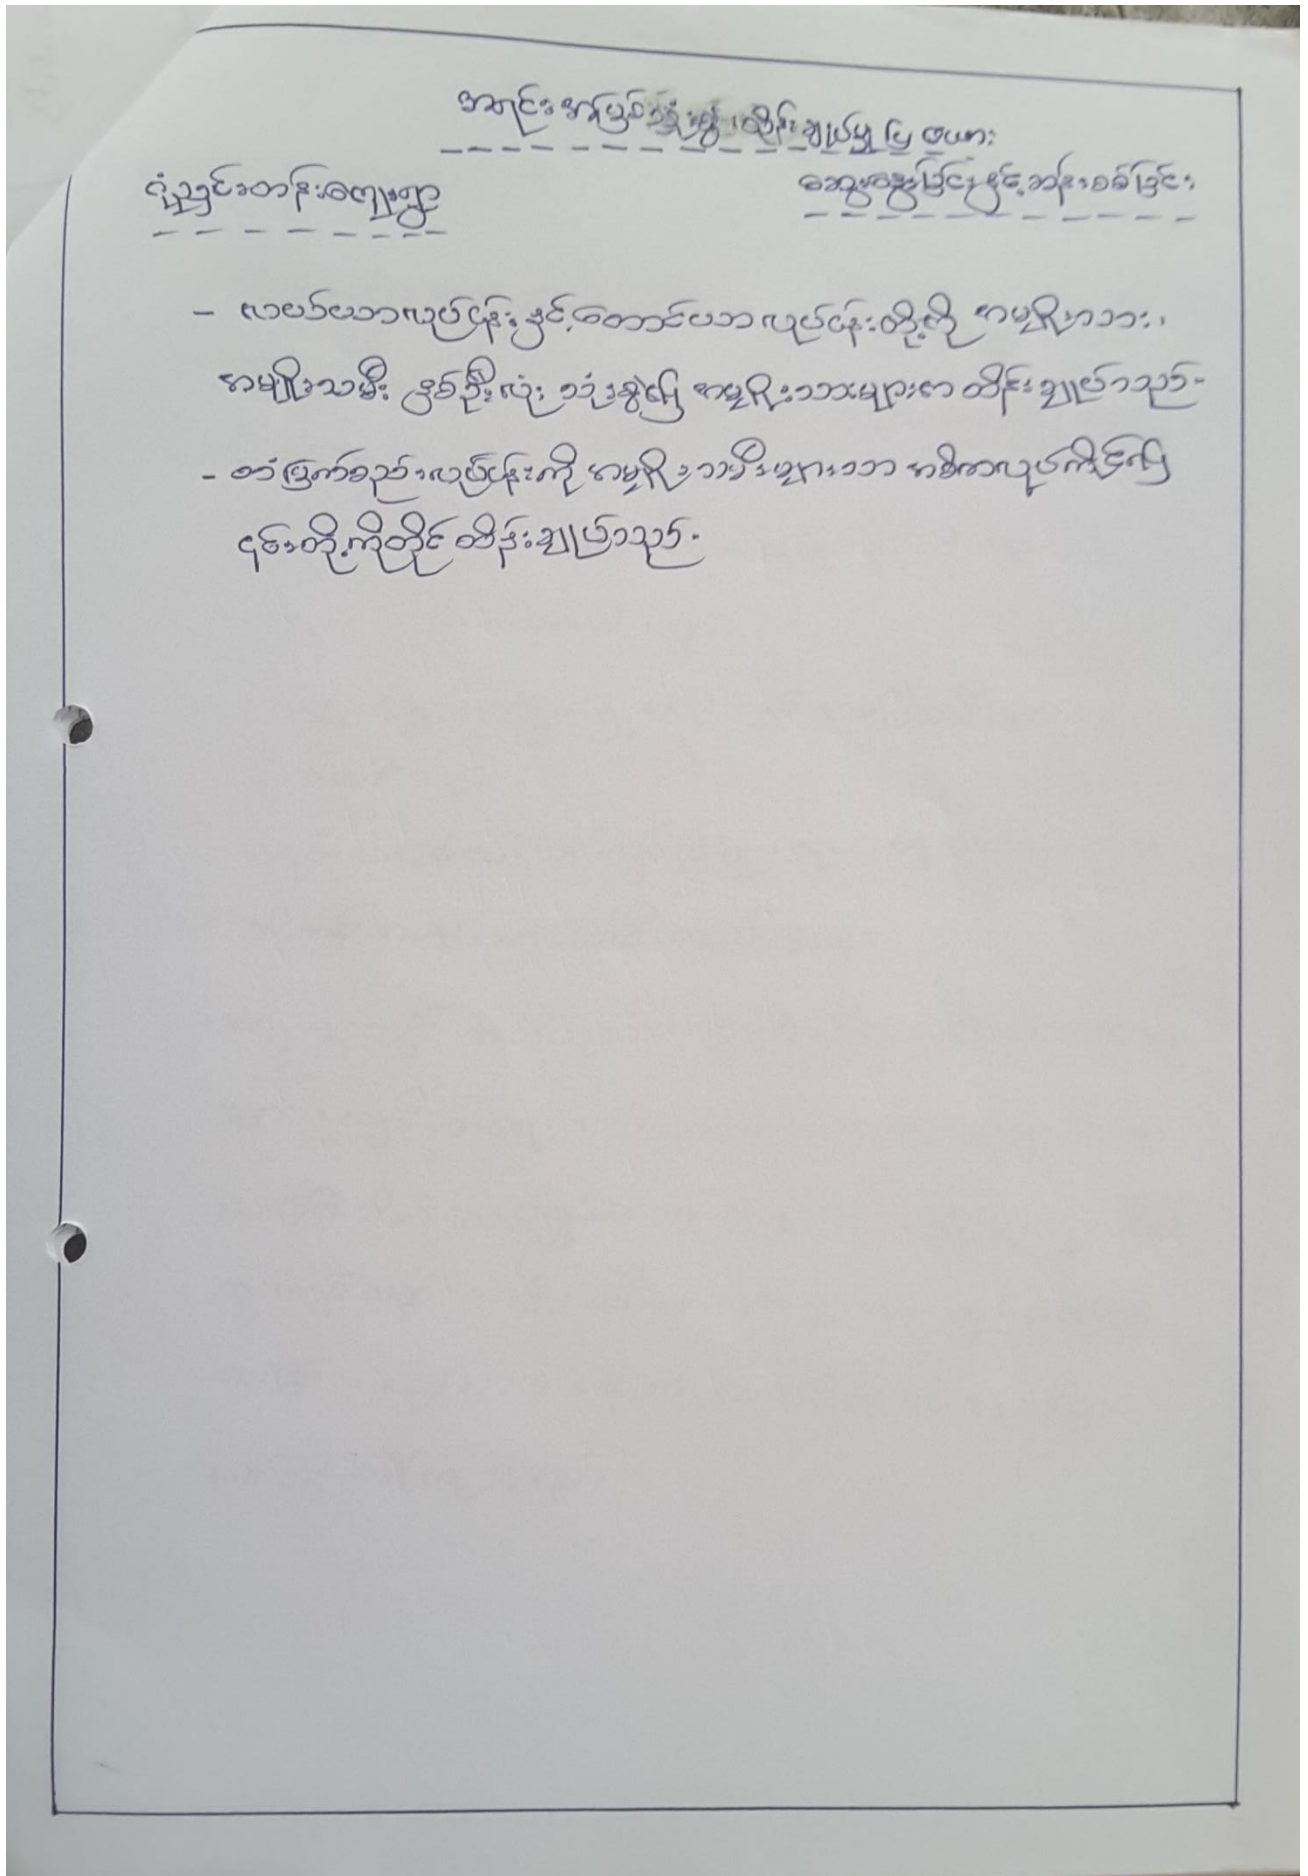 အရင်းအမြစ်သုံးစွဲ၊ ထိန်းချုပ်မှု ပြ ဇယား
ဂုံညှင်းတန်းကျေးရွာ
ဆွေးနွေးခြင်းနှင့် ဆန်းစစ်ခြင်း
- လယ်ယာလုပ်ငန်းနှင့် တောင်ယာလုပ်ငန်းတို့ကို အမျိုးသား၊
အမျိုးသမီး နှစ်ဦးလုံး သုံးစွဲ၍ အမျိုးသားများက ထိန်းချုပ်သည်-
- တံမြက်စည်းလုပ်ငန်းကို အမျိုးသမီးများသာ အဓိကလုပ်ကိုင်၍
၎င်းတို့ကိုတိုင် ထိန်းချုပ်သည်-